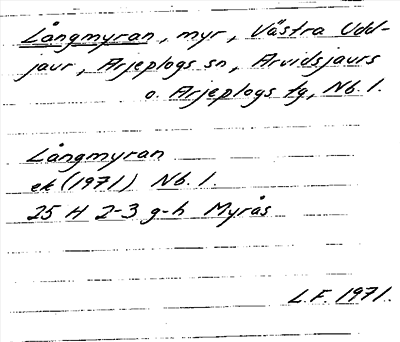 Långmyran, myr, Västra Udd-
jaur, Arjeplogs sn, Arvidsjaurs
o. Arjeplogs tg, Nb. l.
Långmyran
ek (1971) Nb. l.
25 H 2-3 g-h Myrås
L.F. 1971.